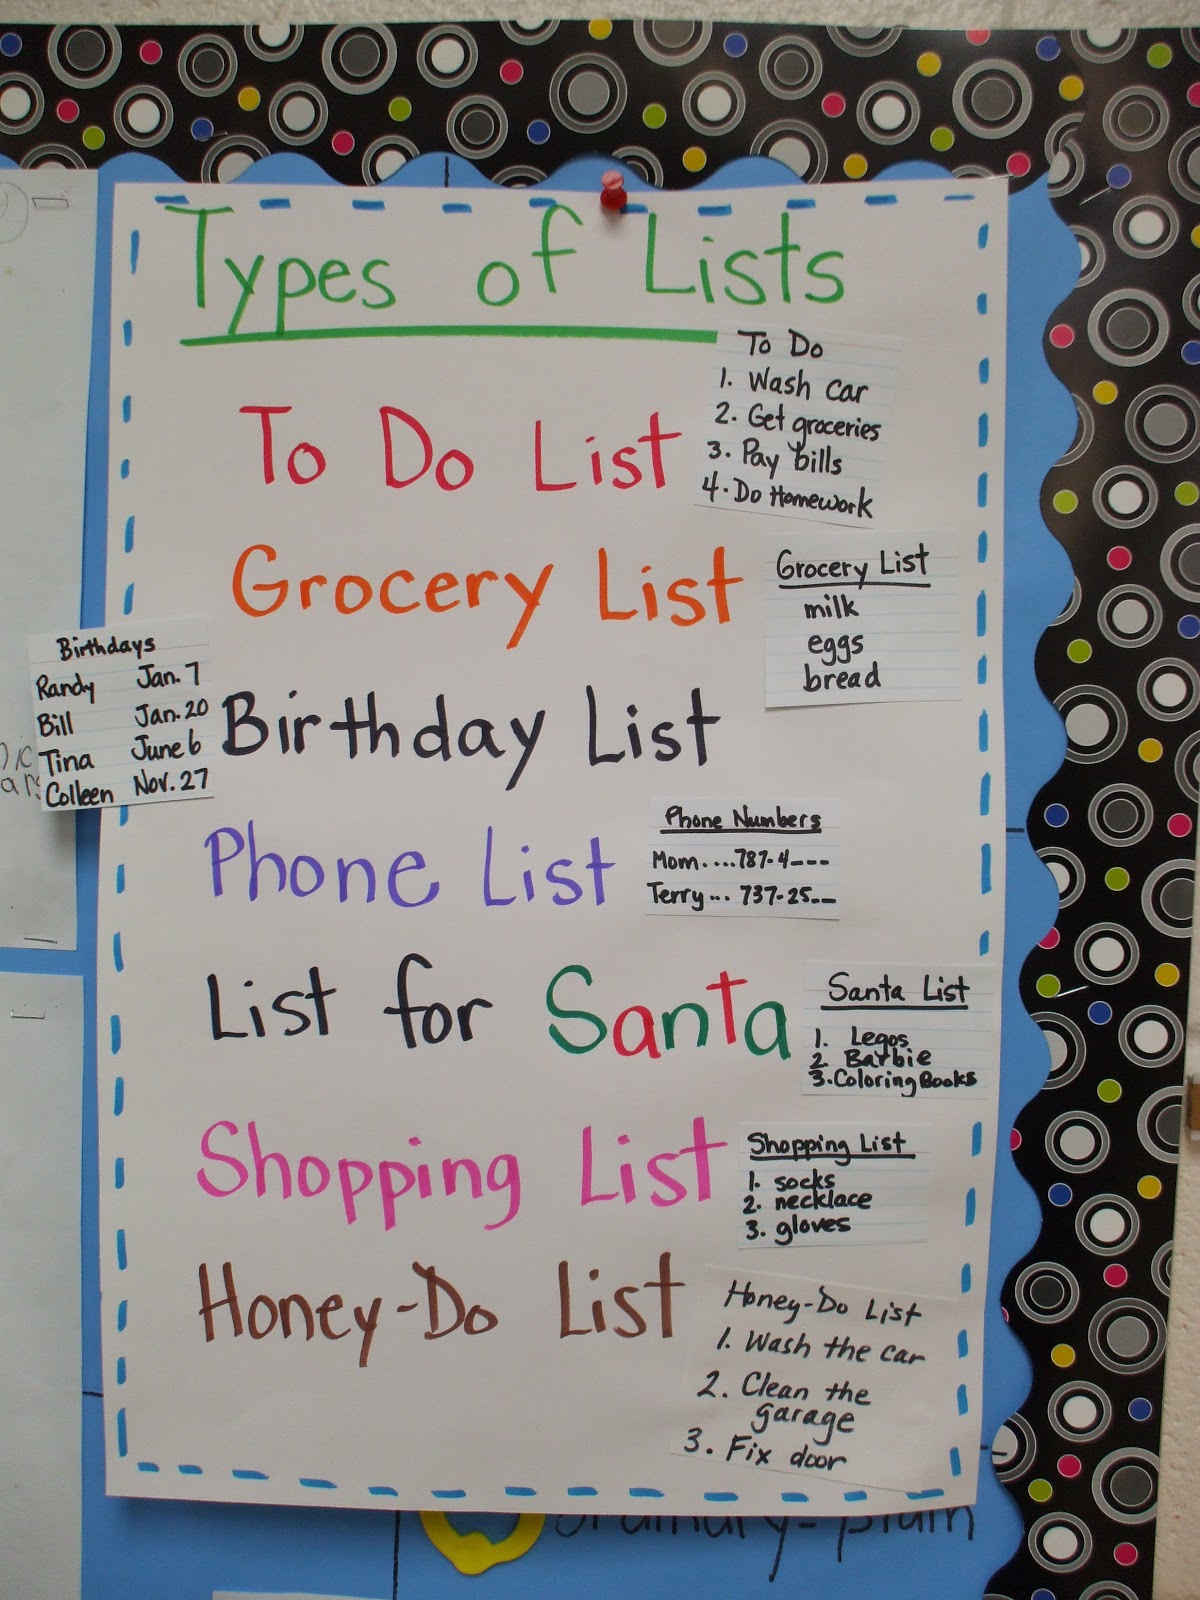 Types of Lists
To Do List
To Do
1. Wash car
2. Get groceries
3. Pay bills
4. Do Homework
Grocery List
Grocery List
milk
eggs
bread
Birthdays
Randy Jan. 7
Bill Jan. 20
Tina June 6
Colleen Nov. 27
Birthday List
Phone List
Phone Numbers
Mom....787-4---
Terry... 737-25--
List for Santa
Santa List
1. Legos
2 Barbie
3. Coloring Books
Shopping List
Shopping List
1. socks
2. necklace
3. gloves
Honey-Do List
Honey-Do List
1. Wash the car
2. Clean the
garage
3. Fix door
ordinary-plain